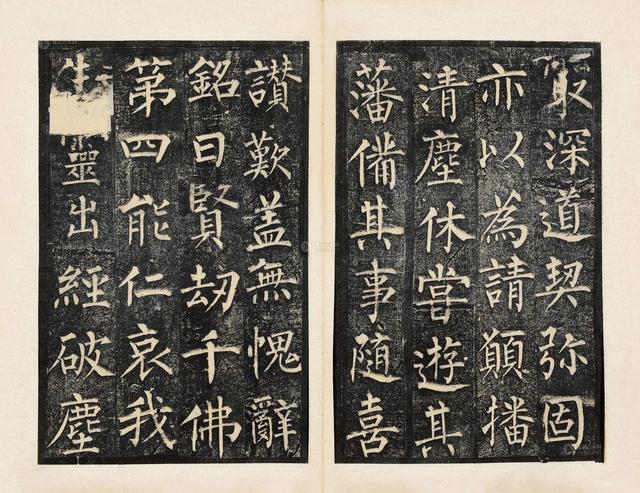 最深道契弥固
亦以為請願播
清塵休嘗遊其
藩備其事隨喜
讚歎盖無愧辭
銘曰賢刧千佛
第四能仁哀我
生靈出經破塵